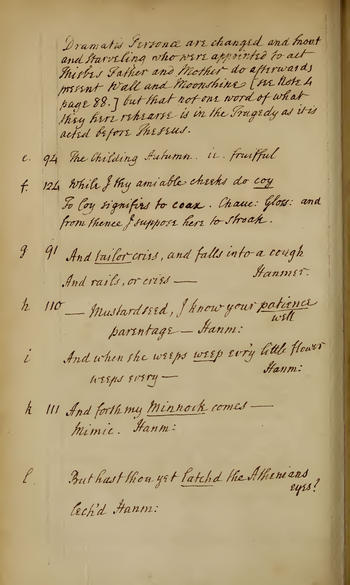 Dramatis Personæ are changed and Snout
and Starveling who were appointed to act
Thisbes Father and Mother do afterwards
present Wall and Moonshine [see Note 4
page 88.] but that not one word of what
they here rehearse is in the Tragedy as it is
acted before Theseus.
e. 94 The Childing Autumn. ie. fruitful
f. 124 While I thy amiable cheeks do coy
To Coy signifies to coax. Chauc: Gloss: and
from thence I suppose here to stroak.
g 91 And tailor cries, and falls into a cough
And rails, or cries — Hanmer.
h 110 — Mustardseed, I know your patience
well
parentage — Hanm:
i And when she weeps weep ev'ry little flower
weeps every — Hanm:
k 111 And forth my Minnock comes —
Mimic. Hanm:
l. But hast thou yet latch'd the Athenians
eyes?
lech'd Hanm: